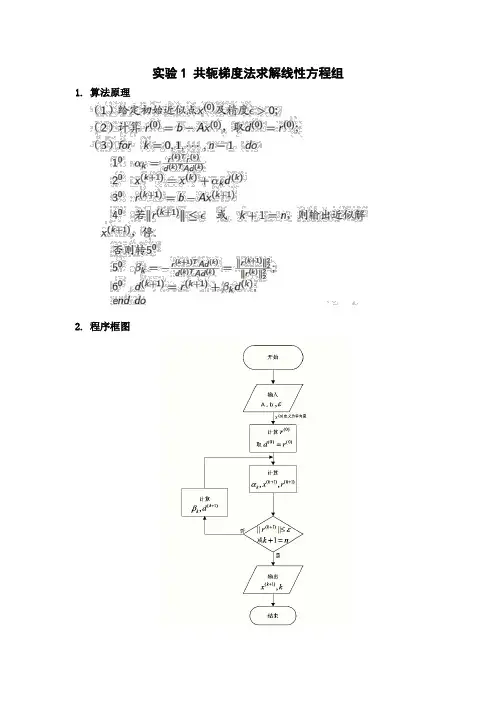 实验1 共轭梯度法求解线性方程组
1. 算法原理
(1)给定初始近似点x^(0)及精度ϵ > 0;
(2)计算 r^(0) = b − Ax^(0), 取d^(0) = r^(0);
(3)for k = 0,1,⋯,n−1 do
1⁰ α_k = r^(k)T r^(k) / d^(k)T Ad^(k)
2⁰ x^(k+1) = x^(k) + α_k d^(k)
3⁰ r^(k+1) = b − Ax^(k+1)
4⁰ 若‖r^(k+1)‖ ≤ ϵ 或 k+1 = n, 则给出近似解
x^(k+1), 停,
否则转5⁰
5⁰ β_k = − r^(k+1)T Ad^(k) / d^(k)T Ad^(k) = ‖r^(k+1)‖₂² / ‖r^(k)‖₂²;
6⁰ d^(k+1) = r^(k+1) + β_k d^(k);
end do
2. 程序框图
开始
输入
A,b,ε
计算 r^(0)
取 d^(0) = r^(0)
计算
α_k, x^(k+1), r^(k+1)
计算
β_k, d^(k+1)
否
‖r^(k+1)‖≤ε
或k+1=n
是
输出
x^(k+1), k
结束